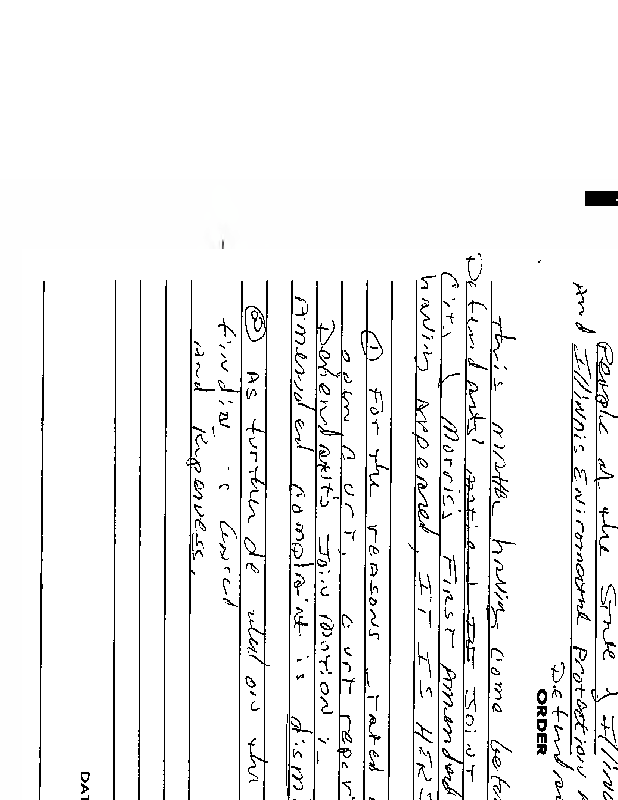 People of the State of Illino
And Illinois Enviromental Protection A
Defenda
ORDER
This matter having come befor
Defendants' Joint
City of Morris's First Amended
having appeared, IT IS HERE
① For the reasons stated
open court, court repor
Defendants Join Motion i
Amended complaint is dism
② As further on this
finding is
And Expenses.
DAT